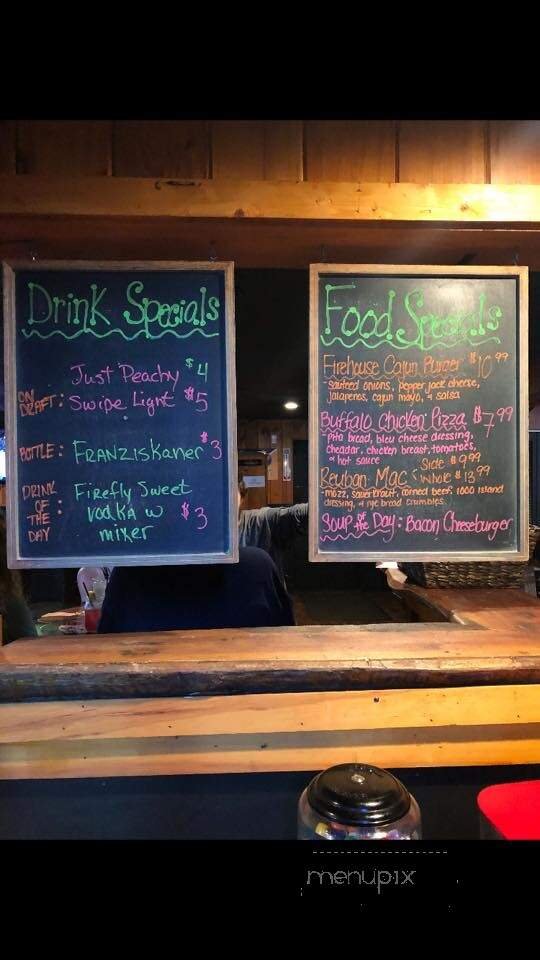 Drink Specials
Just Peachy $4
ON DRAFT: Swipe Light $5
BOTTLE: FRANZISKANER $3
DRINK OF THE DAY Firefly Sweet
vodka w $3
mixer
Food Specials
Firehouse Cajun Burger $10.99
-sauteed onions, pepper jack cheese,
jalapenos, cajun mayo, & salsa
Buffalo Chicken Pizza $7.99
-pita bread, bleu cheese dressing,
cheddar, chicken breast, tomatoes,
& hot sauce
Reuban Mac: Side $9.99
Whole $13.99
-mozz, sauerkraut, corned beef, 1000 island
dressing, & rye bread crumbles
Soup of the Day: Bacon Cheeseburger
menupix